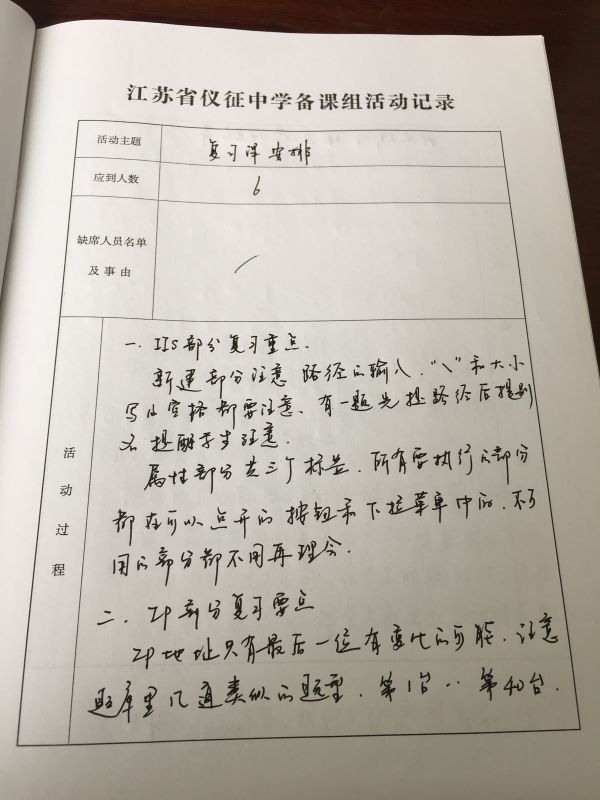 江苏省仪征中学备课组活动记录
活动主题
复习课安排
应到人数
6
缺席人员名单
及事由
/
活动过程
一. IIS部分复习重点.
新建部分注意 路径的输入. "\"和大小
写的空格都要注意. 有一题先提路径后提别
名提醒学生注意.
属性部分共三个标签. 所有要执行的部分
都在可以点开的按钮和下拉菜单中的. 不可
用的部分都不用再理会.
二. IP部分复习要点
IP地址只有最后一位有变化的可能. 注意
题库里几道类似的题型. 第1台.. 第40台.